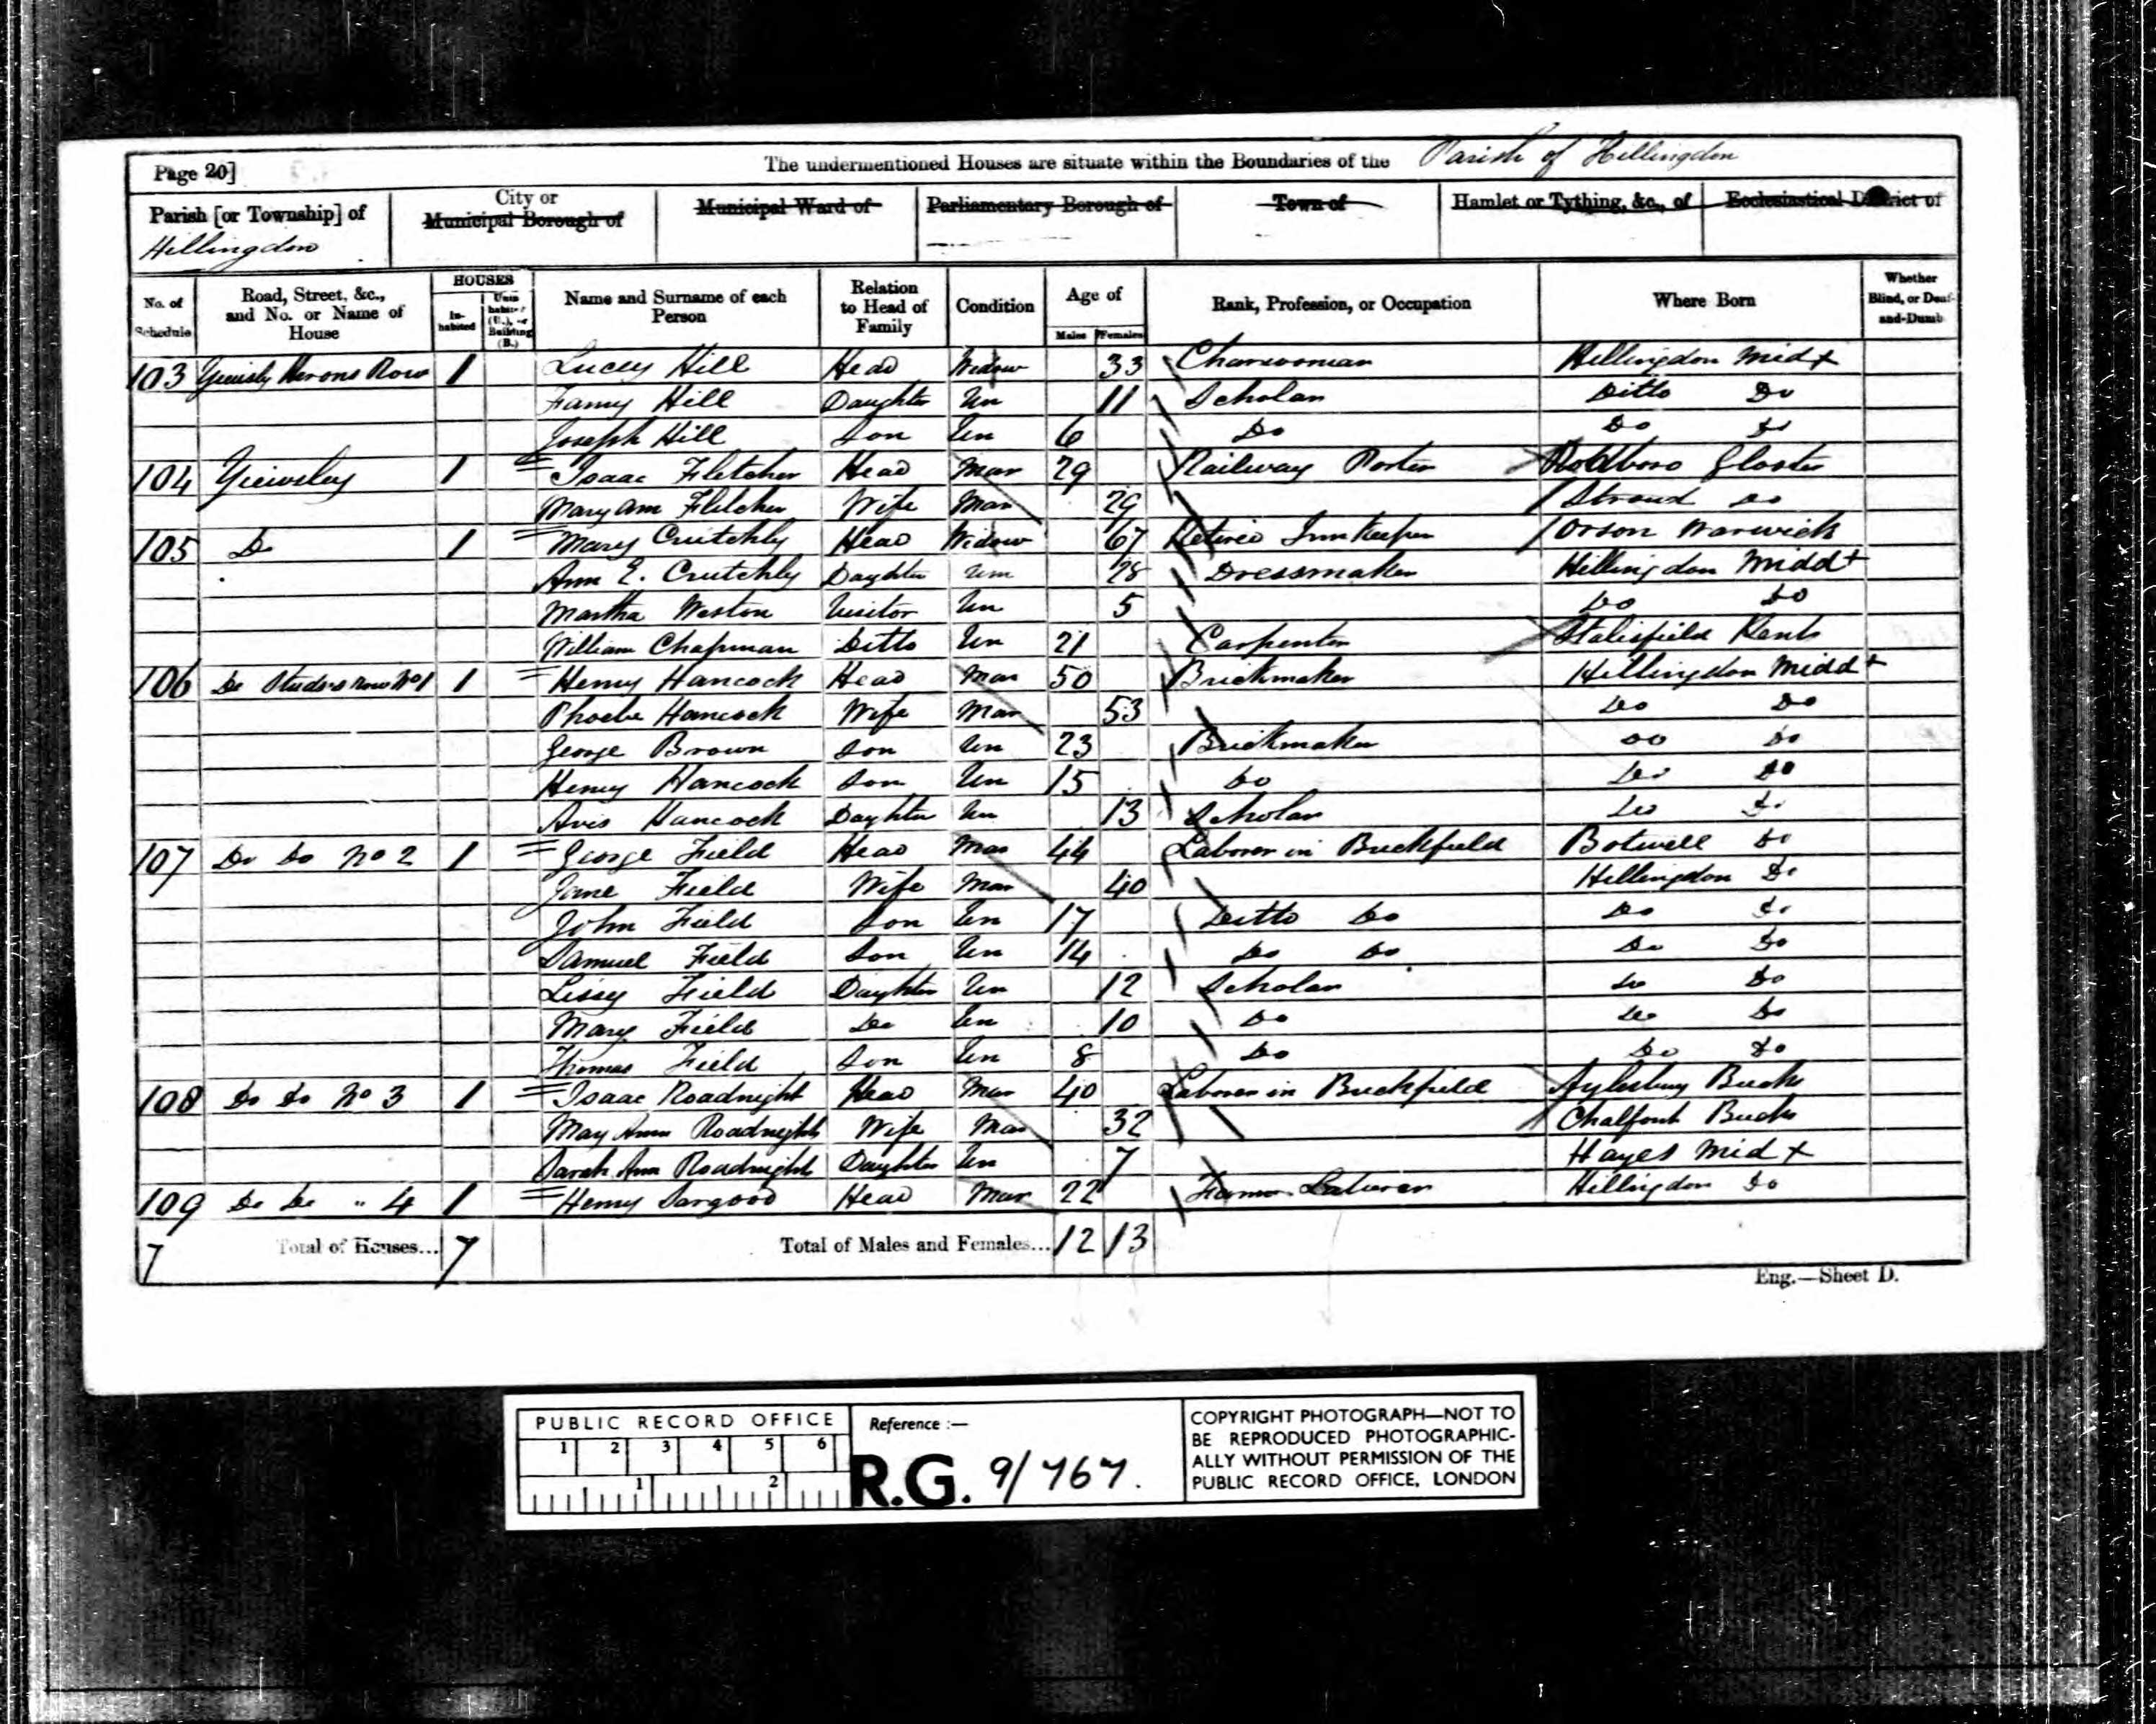 Page 20] The undermentioned Houses are situate within the Boundaries of the Parish of Hillingdon
Parish [or Township] of Hillingdon City or Municipal Borough of Municipal Ward of Parliamentary Borough of Town of Hamlet or Tything, &c., of Ecclesiastical District of
No. of Schedule Road, Street, &c., and No. or Name of House HOUSES Inhabited Uninhabited (U.), or Building (B.) Name and Surname of each Person Relation to Head of Family Condition Age of Males Females Rank, Profession, or Occupation Where Born Whether Blind, or Deaf-and-Dumb
103 Herons Row 1 Lucey Hill Head Widow 33 Charwoman Hillingdon Midx
Fanny Hill Daughter Un 11 Scholar Ditto Do
Joseph Hill Son Un 6 Do Do Do
104 Yiewsley 1 Isaac Fletcher Head Mar 29 Railway Porter Gloster
Mary Ann Fletcher Wife Mar 29 Stroud Do
105 Do 1 Mary Crutchly Head Widow 67 Retired Innkeeper Orson Warwick
Ann E. Crutchly Daughter Um 28 Dressmaker Hillingdon Middx
Martha Weston Visitor Un 5 Do Do
William Chapman Ditto Un 21 Carpenter Stalisfield Kent
106 Do Row No 1 1 Henry Hancock Head Mar 50 Brickmaker Hillingdon Middx
Phoebe Hancock Wife Mar 53 Do Do
George Brown Son Un 23 Brickmaker Do Do
Henry Hancock Son Un 15 Do Do Do
Avis Hancock Daughter Un 13 Scholar Do Do
107 Do Do No 2 1 George Field Head Mar 44 Laborer in Brickfield Botwell Do
Jane Field Wife Mar 40 Hillingdon Do
John Field Son Un 17 Ditto Do Do Do
Samuel Field Son Un 14 Do Do Do Do
Lissy Field Daughter Un 12 Scholar Do Do
Mary Field Do Un 10 Do Do Do
Thomas Field Son Un 8 Do Do Do
108 Do Do No 3 1 Isaac Roadnight Head Mar 40 Laborer in Brickfield Aylesbury Bucks
May Ann Roadnight Wife Mar 32 Chalfont Bucks
Sarah Ann Roadnight Daughter Un 7 Hayes Midx
109 Do Do " 4 1 Henry Sargood Head Mar 22 Farm Laborer Hillingdon Do
7 Total of Houses... 7 Total of Males and Females... 12 13
Eng.—Sheet D.
PUBLIC RECORD OFFICE
1 2 3 4 5 6
1 2
Reference :—
R.G. 9/767.
COPYRIGHT PHOTOGRAPH—NOT TO
BE REPRODUCED PHOTOGRAPHIC-
ALLY WITHOUT PERMISSION OF THE
PUBLIC RECORD OFFICE, LONDON